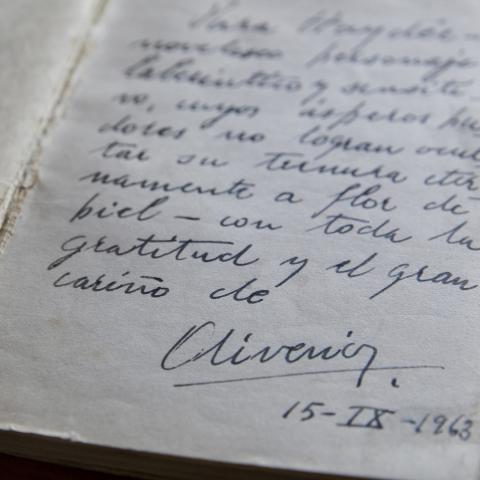 Para Haydée –
novelesco personaje
laberíntico y sensiti-
vo, cuyos ásperos pu
dores no logran ocul
tar su ternura eter
namente a flor de
piel – con toda la
gratitud y el gran
cariño de
Oliverio.
15-IX-1963